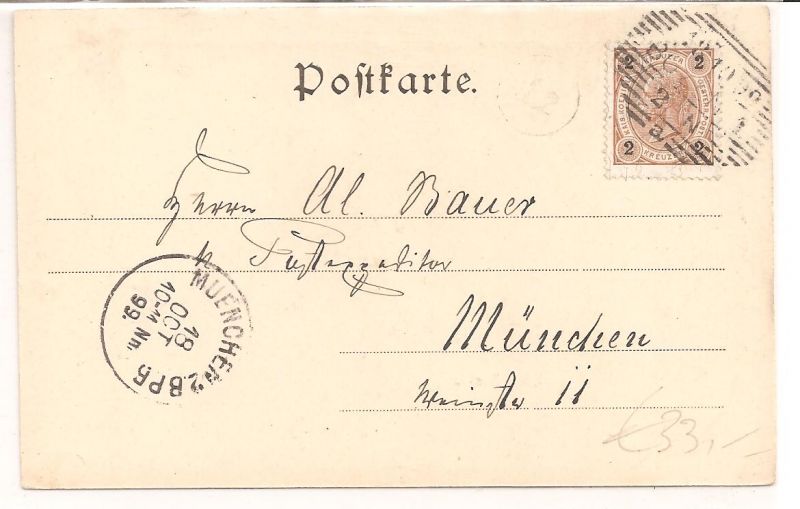 Postkarte.
2 2
KREUZER
2 2
Herrn Al. Bauer
Postexpeditor
München
11
MUENCHEN 2.B.P.5
18
OCT
10-11 Nm.
99.
€ 33,-